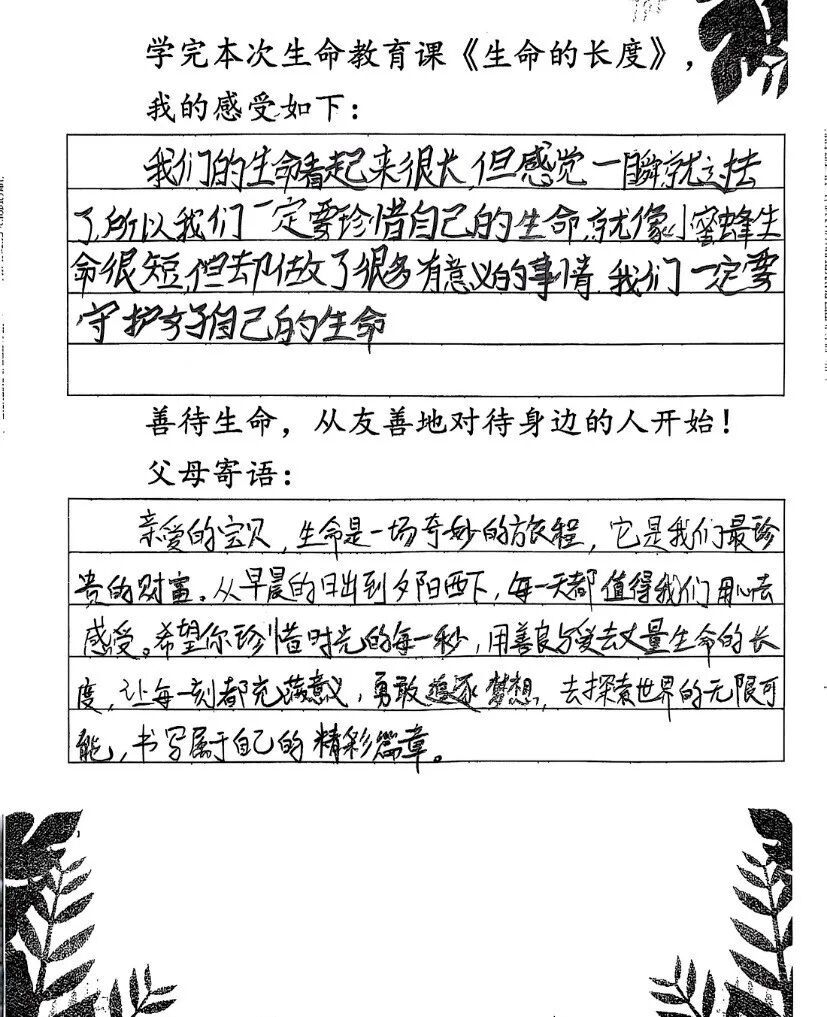 学完本次生命教育课《生命的长度》，
我的感受如下：
我们的生命看起来很长，但感觉一瞬就过去
了，所以我们一定要珍惜自己的生命，就像小蜜蜂生
命很短，但却做了很多有意义的事情，我们一定要
守护好自己的生命
善待生命，从友善地对待身边的人开始！
父母寄语：
亲爱的宝贝，生命是一场奇妙的旅程，它是我们最珍
贵的财富。从早晨的日出到夕阳西下，每一天都值得我们用心去
感受。希望你珍惜时光的每一秒，用善良与爱去丈量生命的长
度，让每一刻都充满意义，勇敢追逐梦想，去探索世界的无限可
能，书写属于自己的精彩篇章。